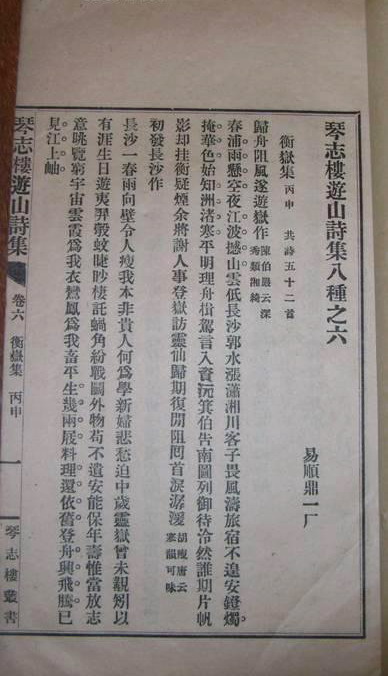 琴志樓遊山詩集八種之六
易順鼎一厂
衡嶽集 丙申 共詩五十二首
歸舟阻風遂遊嶽作 陳伯嚴云深秀類湘綺
春浦雨懸空夜江波撼山雲低長沙郭水漲瀟湘川客子畏風濤旅宿不遑安鐙燭
掩華色始知洲渚寒平明理舟楫駕言入資沅箕伯告南圖列御待泠然誰期片帆
影却挂衡疑煙余將謝人事登嶽訪靈仙歸期復閒阻囘首淚潺湲 胡瘦唐云寒韻可味
初發長沙作
長沙一春雨向壁令人瘦我本非貴人何爲學新婦悲愁迫中歲靈嶽曾未覯矧以
有涯生日遊夷羿彀蚊睫眇棲託蝸角紛戰鬭外物苟不遺安能保年壽惟當放志
意眺覽窮宇宙雲霞爲我衣鸞鳳爲我畜平生幾兩屐料理還依舊登舟興飛騰已
見江上岫
琴志樓遊山詩集
卷六 衡嶽集 丙申
一
琴志樓叢書